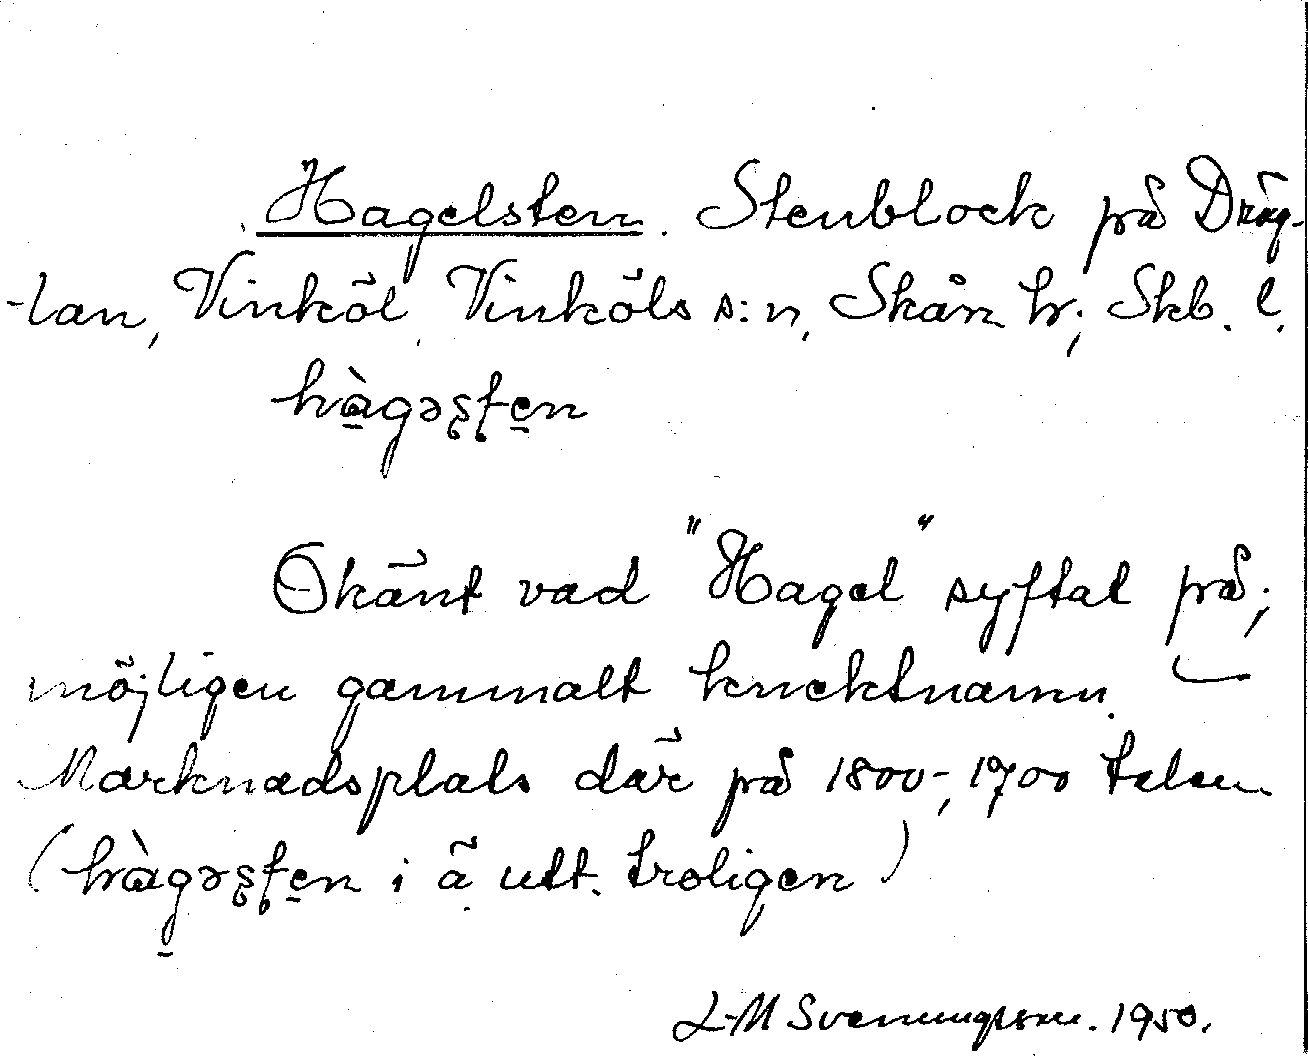 Hagelsten. Stenblock på Dräg-
-lan, Vinköl, Vinköls s:n, Skån. hr; Skb. l.
hàgəʂʈen
Okänt vad "Hagel" syftat på;
möjligen gammalt knektnamn.
Marknadsplats där på 1800-, 1700 talen
(hàgəʂʈen i ä utt. troligen)
L-M Svenungsson. 1950.